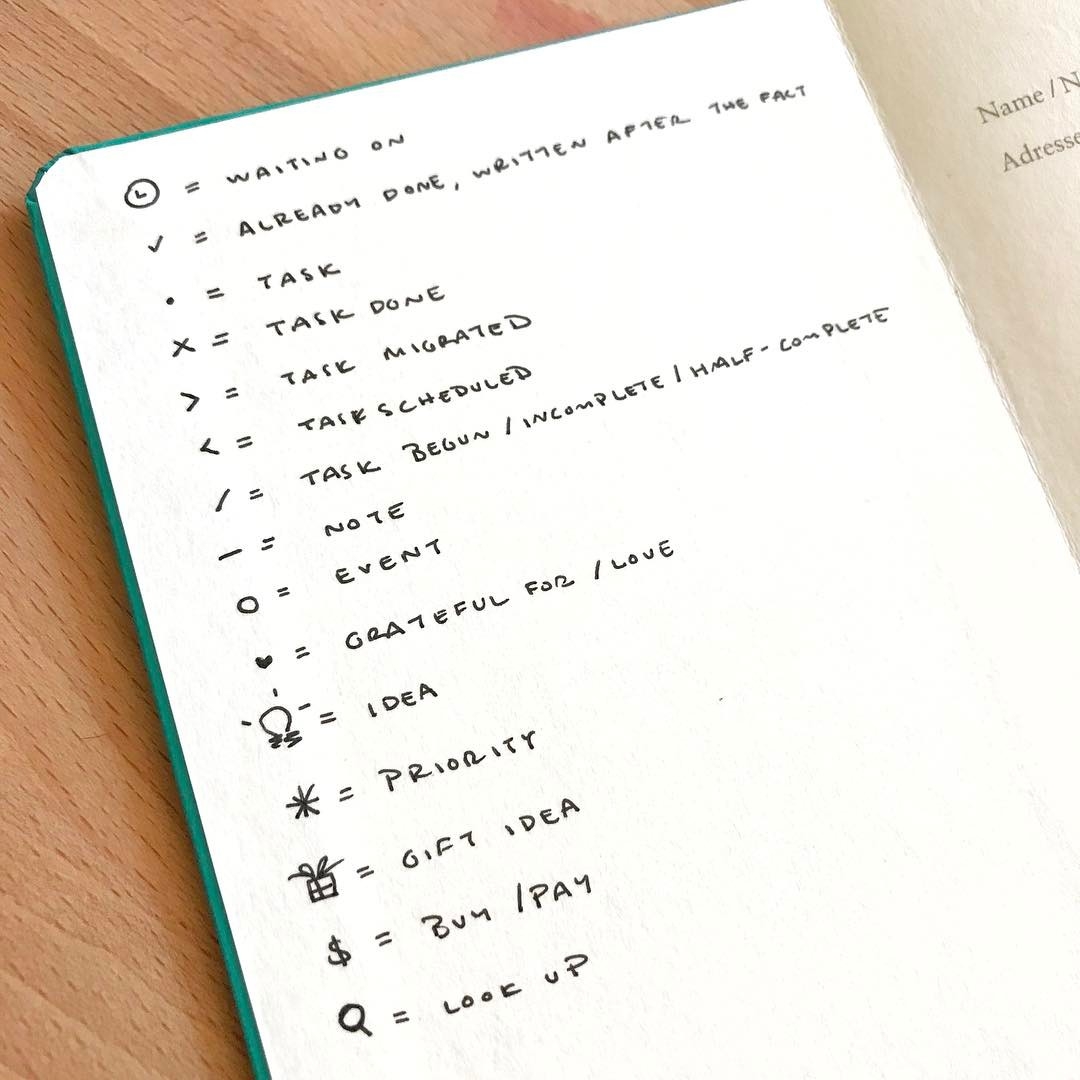 = WAITING ON
✓ = ALREADY DONE, WRITTEN AFTER THE FACT
• = TASK
x = TASK DONE
> = TASK MIGRATED
< = TASK SCHEDULED
/ = TASK BEGUN / INCOMPLETE / HALF-COMPLETE
— = NOTE
O = EVENT
♥ = GRATEFUL FOR / LOVE
= IDEA
* = PRIORITY
= GIFT IDEA
$ = BUY / PAY
= LOOK UP
Name / N
Adresse